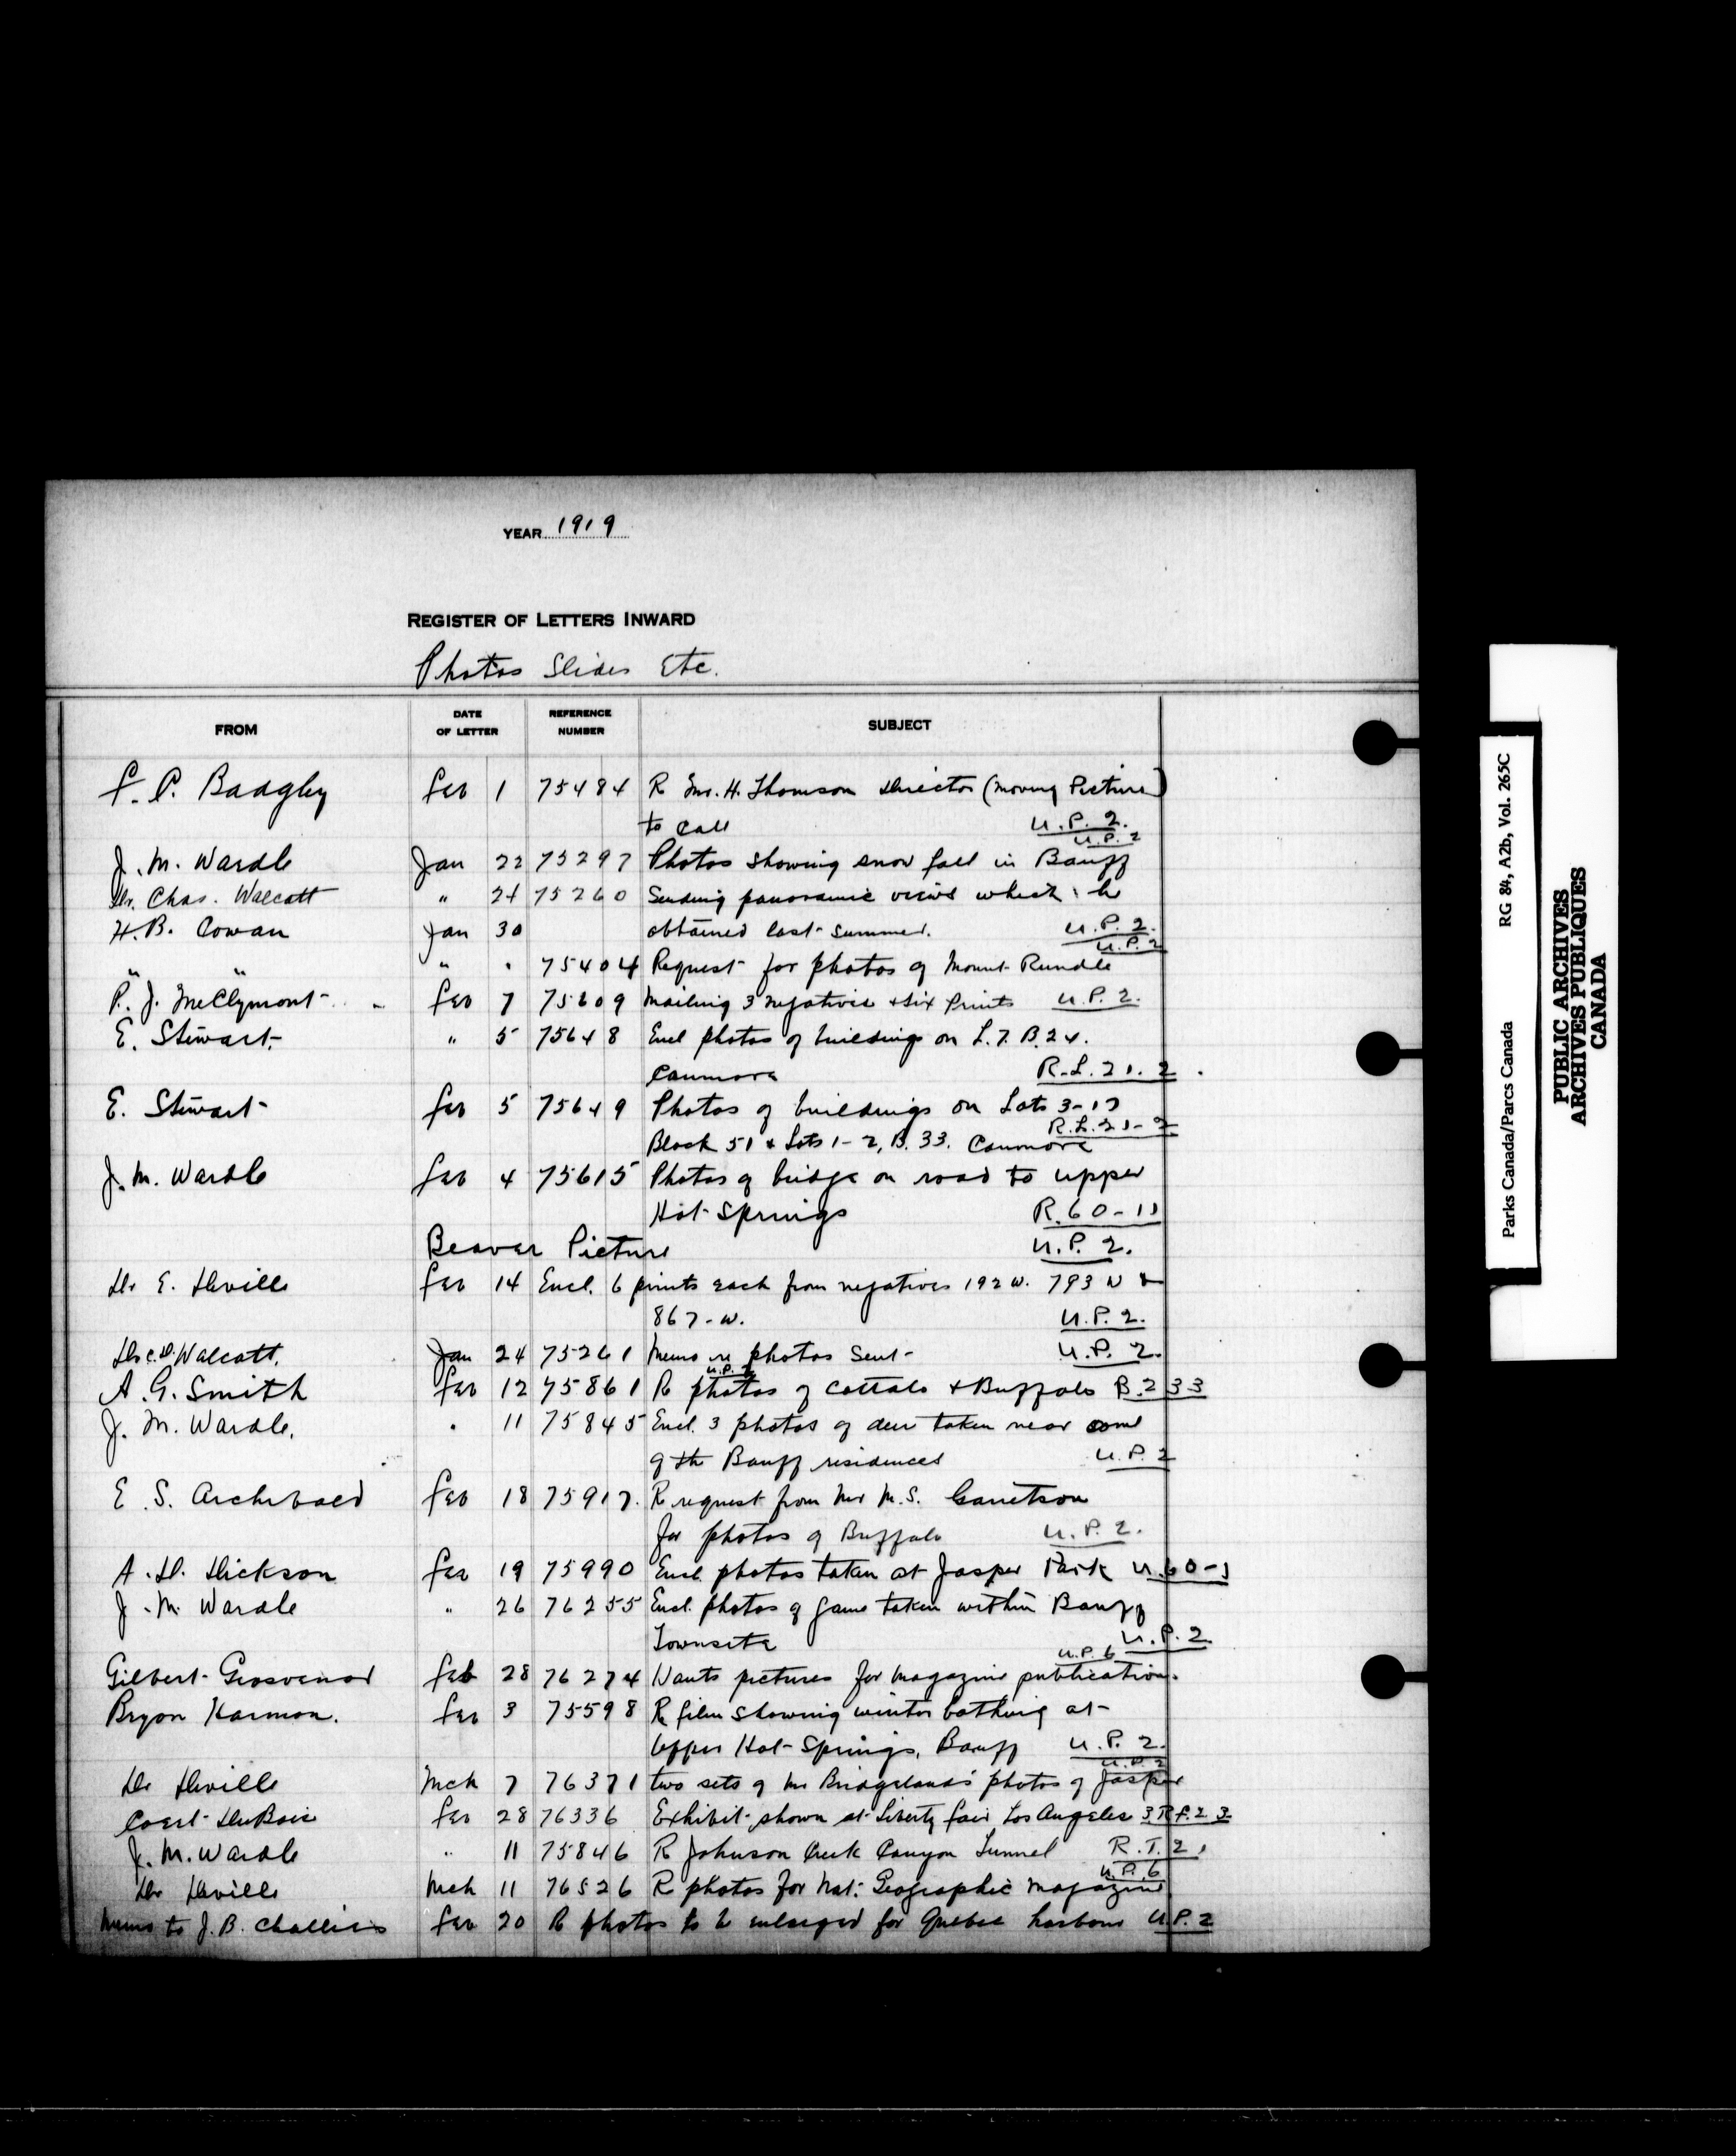 YEAR 1919
REGISTER OF LETTERS INWARD
Photos Slides Etc.
FROM DATE OF LETTER REFERENCE NUMBER SUBJECT
F. C. Badgley Feb 1 75484 R Mr. H. Thomson Director (Moving Picture)
to call U.P. 2.
U.P. 2
J. M. Wardle Jan 22 75297 Photos showing snow fall in Banff
Dr. Chas. Walcott " 24 75260 Sending panoramic views which he
H. B. Cowan Jan 30 obtained last summer. U.P. 2.
U.P. 2
" " " . 75404 Request for photos of Mount Rundle
P. J. McClymont Feb 7 75609 Mailing 3 negatives & six prints U.P. 2.
E. Stewart " 5 75648 Encl photos of buildings on L. 7. B. 24.
Canmore R.L. 21. 2
E. Stewart Feb 5 75649 Photos of buildings on Lots 3-17
R.L. 21-2
Block 51 & Lots 1-2, B. 33. Canmore
J. M. Wardle Feb 4 75615 Photos of bridge on road to upper
Hot Springs R. 60-11
Beaver Picture U.P. 2.
Dr E. Deville Feb 14 Encl. 6 prints each from negatives 192 W. 793 W &
867-W. U.P. 2.
Dr C.D. Walcott. Jan 24 75261 Memo re photos sent U.P. 2.
U.P. 2
A. G. Smith Feb 12 75861 R photos of Cattalo & Buffalo B. 233
J. M. Wardle. . 11 75845 Encl. 3 photos of deer taken near some
of the Banff residences U.P. 2
E. S. Archibald Feb 18 75917. R request from Mr M. S. Garretson
for photos of Buffalo U.P. 2.
A. D. Dickson Feb 19 75990 Encl. photos taken at Jasper Park U. 60-1
J. M. Wardle " 26 76255 Encl. photos of game taken within Banff
Townsite U.P. 2.
U.P. 6
Gilbert Grosvenor Feb 28 76274 Wants pictures for magazine publication.
Bryon Harmon. Feb 3 75598 R film showing winter bathing at
Upper Hot Springs, Banff U.P. 2.
U.P. 2
Dr Deville Mch 7 76371 two sets of Mr Bridgeland's photos of Jasper
Coert DuBois Feb 28 76336 Exhibit shown at Liberty fair Los Angeles 3 R F. 2 3
J. M. Wardle " 11 75846 R Johnson Creek Canyon Tunnel R.T. 21
U.P. 6
Dr Deville Mch 11 76526 R photos for Nat. Geographic Magazine
Memo to J. B. Challies Feb 20 R photos to be enlarged for Quebec harbour U.P. 2
Parks Canada/Parcs Canada RG 84, A2b, Vol. 265C
PUBLIC ARCHIVES
ARCHIVES PUBLIQUES
CANADA